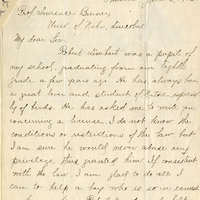 Prof. Lawrence Bruner
Univ. of Nebr. Lincoln
My dear Sir:
Robert Lambert was a pupil of
my school, graduating from our Eighth
grade a few years ago. He has always been
a great lover and student of Nature, especial-
ly of birds. He has asked me to write you
concerning a license. I do not know the
conditions or restrictions of the law, but
I am sure he would never abuse any
privilege thus granted him. If consistent
with the law, I am glad to do all I
can to help a boy who is so in earnest